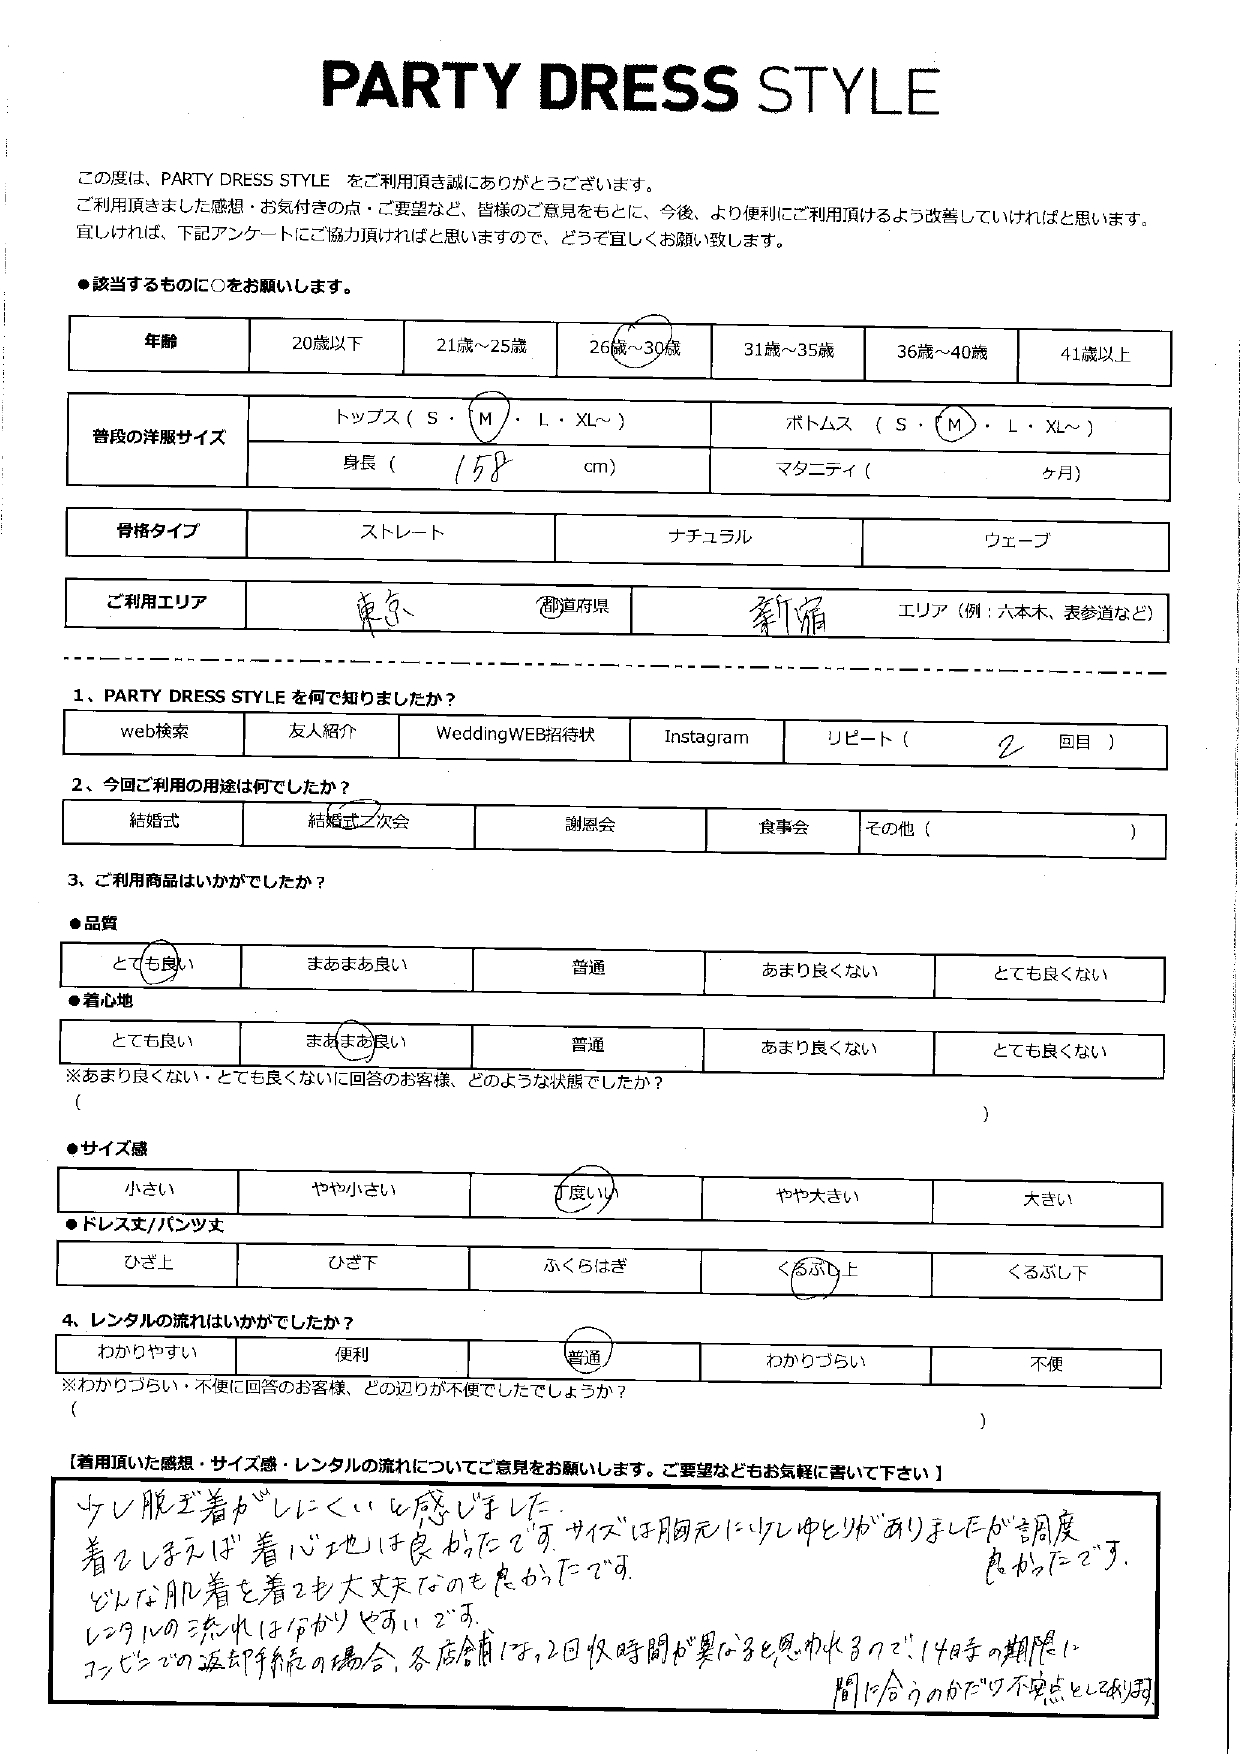 PARTY DRESS STYLE
この度は、PARTY DRESS STYLE をご利用頂き誠にありがとうございます。
ご利用頂きました感想・お気付きの点・ご要望など、皆様のご意見をもとに、今後、より便利にご利用頂けるよう改善していければと思います。
宜しければ、下記アンケートにご協力頂ければと思いますので、どうぞ宜しくお願い致します。
●該当するものに○をお願いします。
年齢 20歳以下 21歳～25歳 26歳～30歳 31歳～35歳 36歳～40歳 41歳以上
普段の洋服サイズ トップス ( S ・ M ・ L ・ XL～ ) ボトムス ( S ・ M ・ L ・ XL～ )
身長 ( 158 cm) マタニティ ( ヶ月)
骨格タイプ ストレート ナチュラル ウェーブ
ご利用エリア 東京 都道府県 新宿 エリア（例：六本木、表参道など）
1、PARTY DRESS STYLE を何で知りましたか？
web検索 友人紹介 WeddingWEB招待状 Instagram リピート ( 2 回目 )
2、今回ご利用の用途は何でしたか？
結婚式 結婚式二次会 謝恩会 食事会 その他 ( )
3、ご利用商品はいかがでしたか？
●品質
とても良い まあまあ良い 普通 あまり良くない とても良くない
●着心地
とても良い まあまあ良い 普通 あまり良くない とても良くない
※あまり良くない・とても良くないに回答のお客様、どのような状態でしたか？
( )
●サイズ感
小さい やや小さい 丁度いい やや大きい 大きい
●ドレス丈/パンツ丈
ひざ上 ひざ下 ふくらはぎ くるぶし上 くるぶし下
4、レンタルの流れはいかがでしたか？
わかりやすい 便利 普通 わかりづらい 不便
※わかりづらい・不便に回答のお客様、どの辺りが不便でしたでしょうか？
( )
【着用頂いた感想・サイズ感・レンタルの流れについてご意見をお願いします。ご要望などもお気軽に書いて下さい 】
少し脱ぎ着がしにくいと感じました.
着てしまえば着心地は良かったです.サイズは胸元に少しゆとりがありましたが調度
良かったです.
どんな肌着を着ても大丈夫なのも良かったです.
レンタルの流れは分かりやすいです.
コンビニでの返却手続の場合、各店舗によって回収時間が異なると思われるので、14時の期限に
間に合うのかだけ不安点としてあります